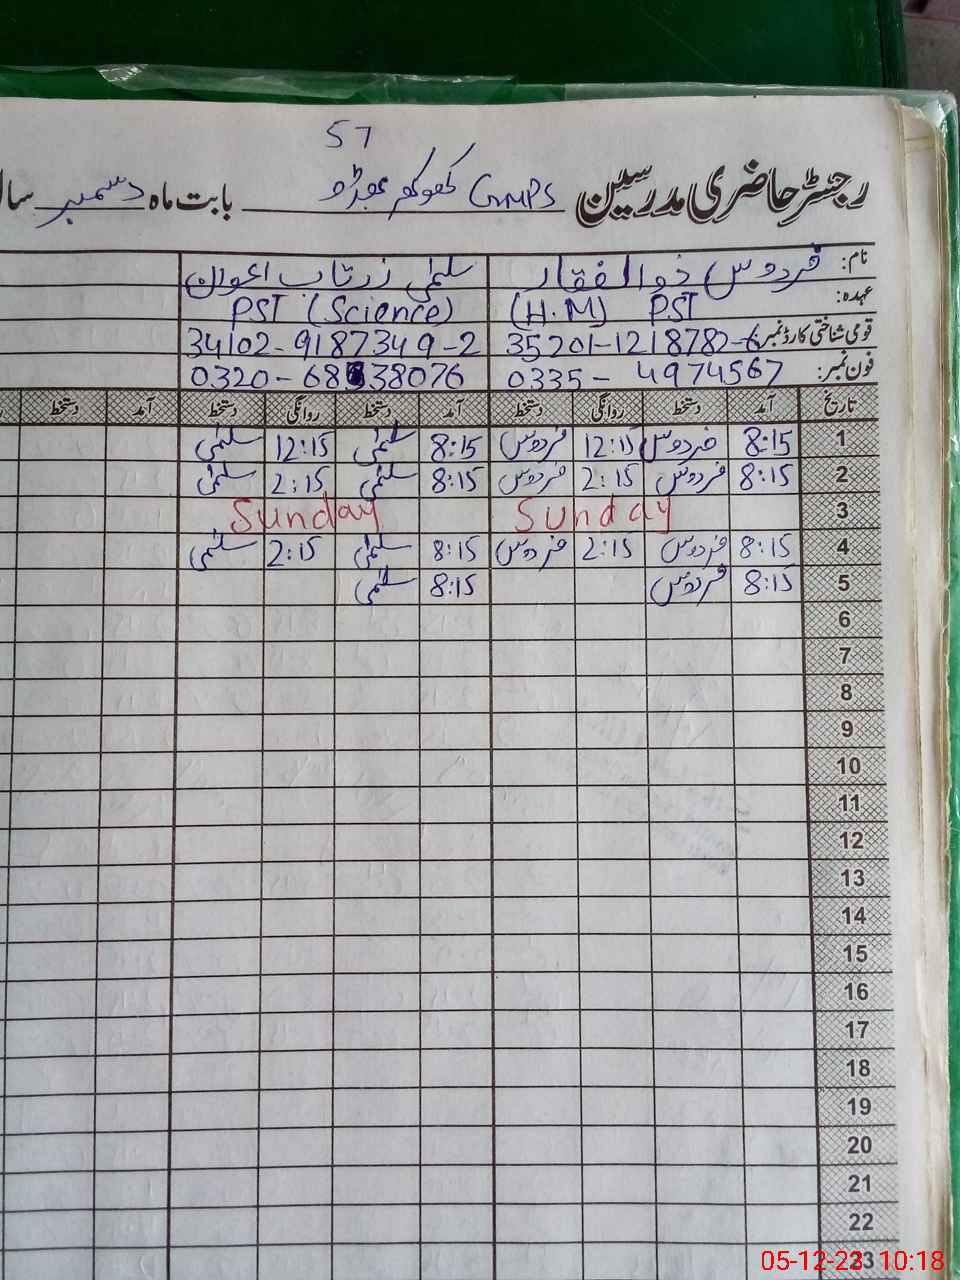 57
رجسٹر حاضری مدرسین GMPS کھوکھر بابت ماہ دسمبر سال
نام: فردوس ذوالفقار سلمٰی زرتاب اعوان
عہدہ: (H.M) PST PST (Science)
قومی شناختی کارڈ نمبر: 35201-1218782-6 34102-9187349-2
فون نمبر: 0335-4974567 0320-68838076
تاریخ آمد دستخط روانگی دستخط آمد دستخط روانگی دستخط آمد دستخط
1 8:15 فردوس 12:15 فردوس 8:15 سلمٰی 12:15 سلمٰی
2 8:15 فردوس 2:15 فردوس 8:15 سلمٰی 2:15 سلمٰی
3 Sunday Sunday
4 8:15 فردوس 2:15 فردوس 8:15 سلمٰی 2:15 سلمٰی
5 8:15 فردوس 8:15 سلمٰی
6
7
8
9
10
11
12
13
14
15
16
17
18
19
20
21
22
23
05-12-23 10:18